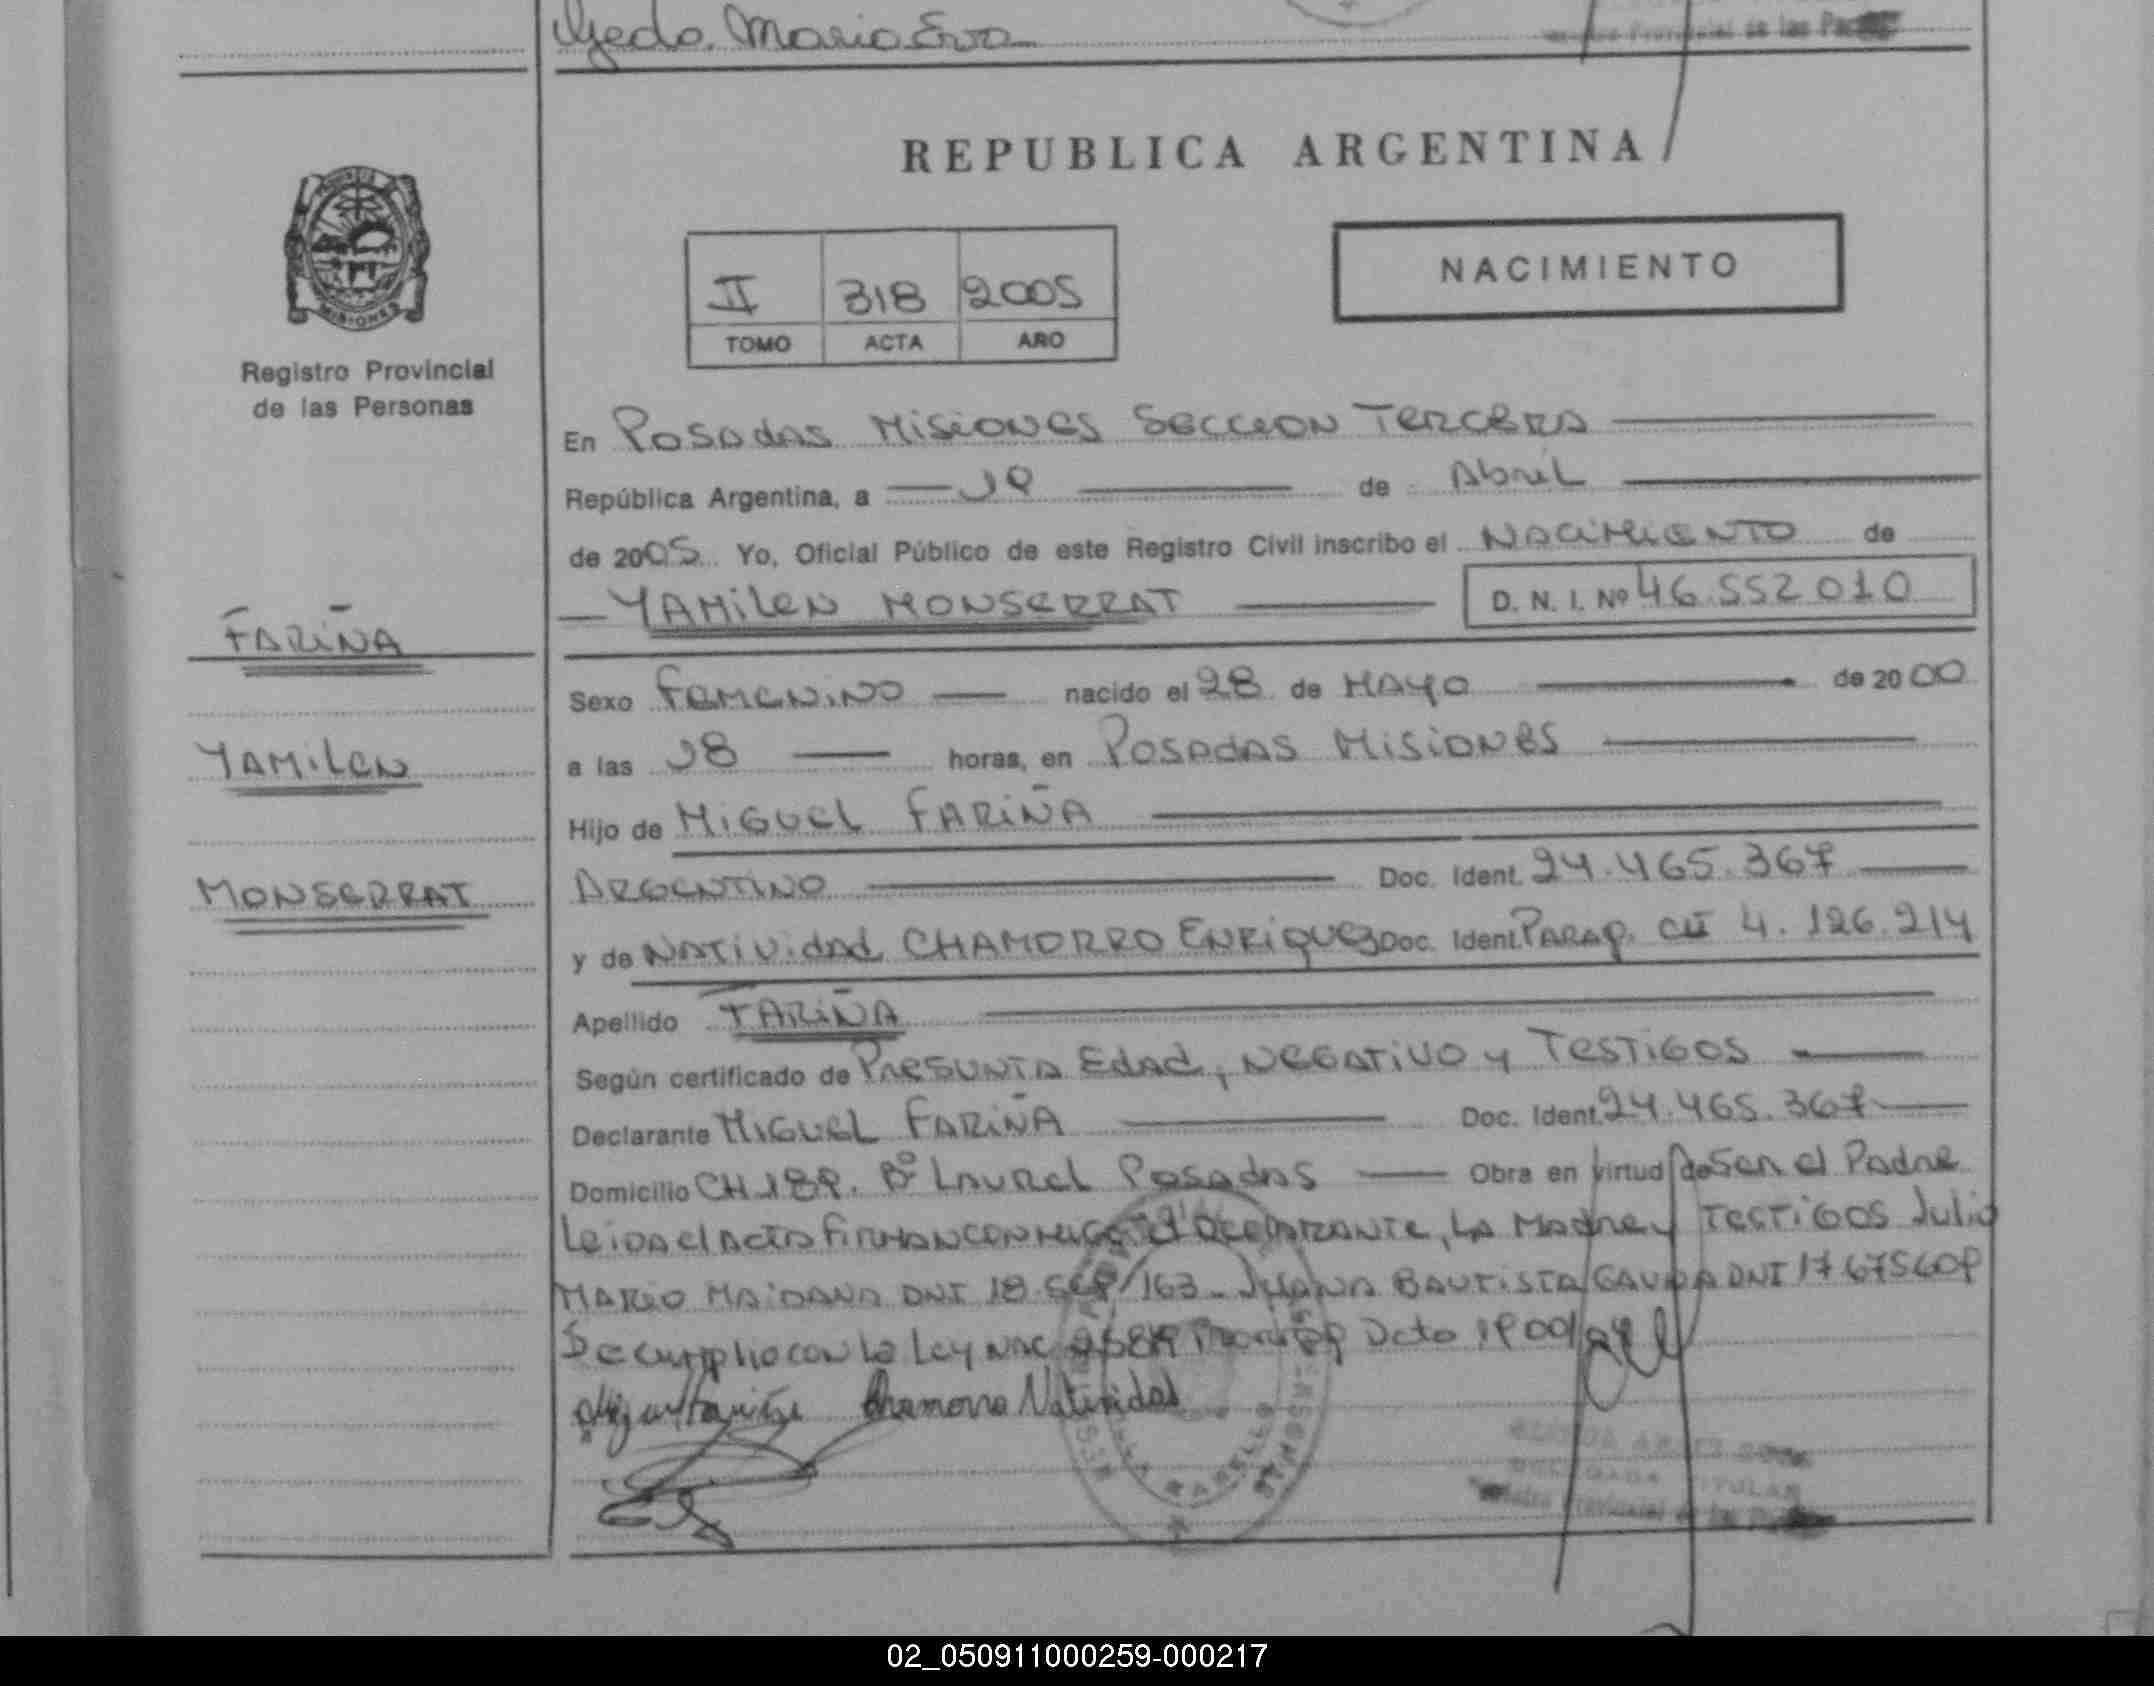 Ojeda. Maria Eva
Provincial de las
REPUBLICA ARGENTINA
MISIONES
Registro Provincial
de las Personas
II 318 2005
TOMO ACTA AÑO
NACIMIENTO
En Posadas Misiones Seccion Tercera
República Argentina, a 19 de Abril
de 2005 Yo, Oficial Público de este Registro Civil inscribo el NACIMIENTO de
YAMILEN MONSERRAT D. N. I. Nº 46.552.010
FARIÑA
Sexo Femenino nacido el 28 de MAYO de 2000
YAMILEN
a las 18 horas, en Posadas Misiones
Hijo de MIGUEL FARIÑA
MONSERRAT
ARGENTINO Doc. Ident. 24.465.367
y de NATIVIDAD CHAMORRO ENRIQUEZ Doc. Ident. PARAG. CI 4.126.214
Apellido FARIÑA
Según certificado de PRESUNTA EDAD, NEGATIVO y TESTIGOS
Declarante MIGUEL FARIÑA Doc. Ident. 24.465.367
Domicilio CH 189. Bº LAUREL Posadas Obra en virtud de Ser el Padre
Leida el acta firman conmigo el declarante, LA Madre y TESTIGOS Julio
MARIO MAIDANA DNI 18. 163 - JUANA BAUTISTA DNI 17675609
Se cumplio con la Ley Nac Dcto
Miguel Fariña Chamorro Natividad
DELEGADA TITULAR
Registro Provincial de las
02_050911000259-000217